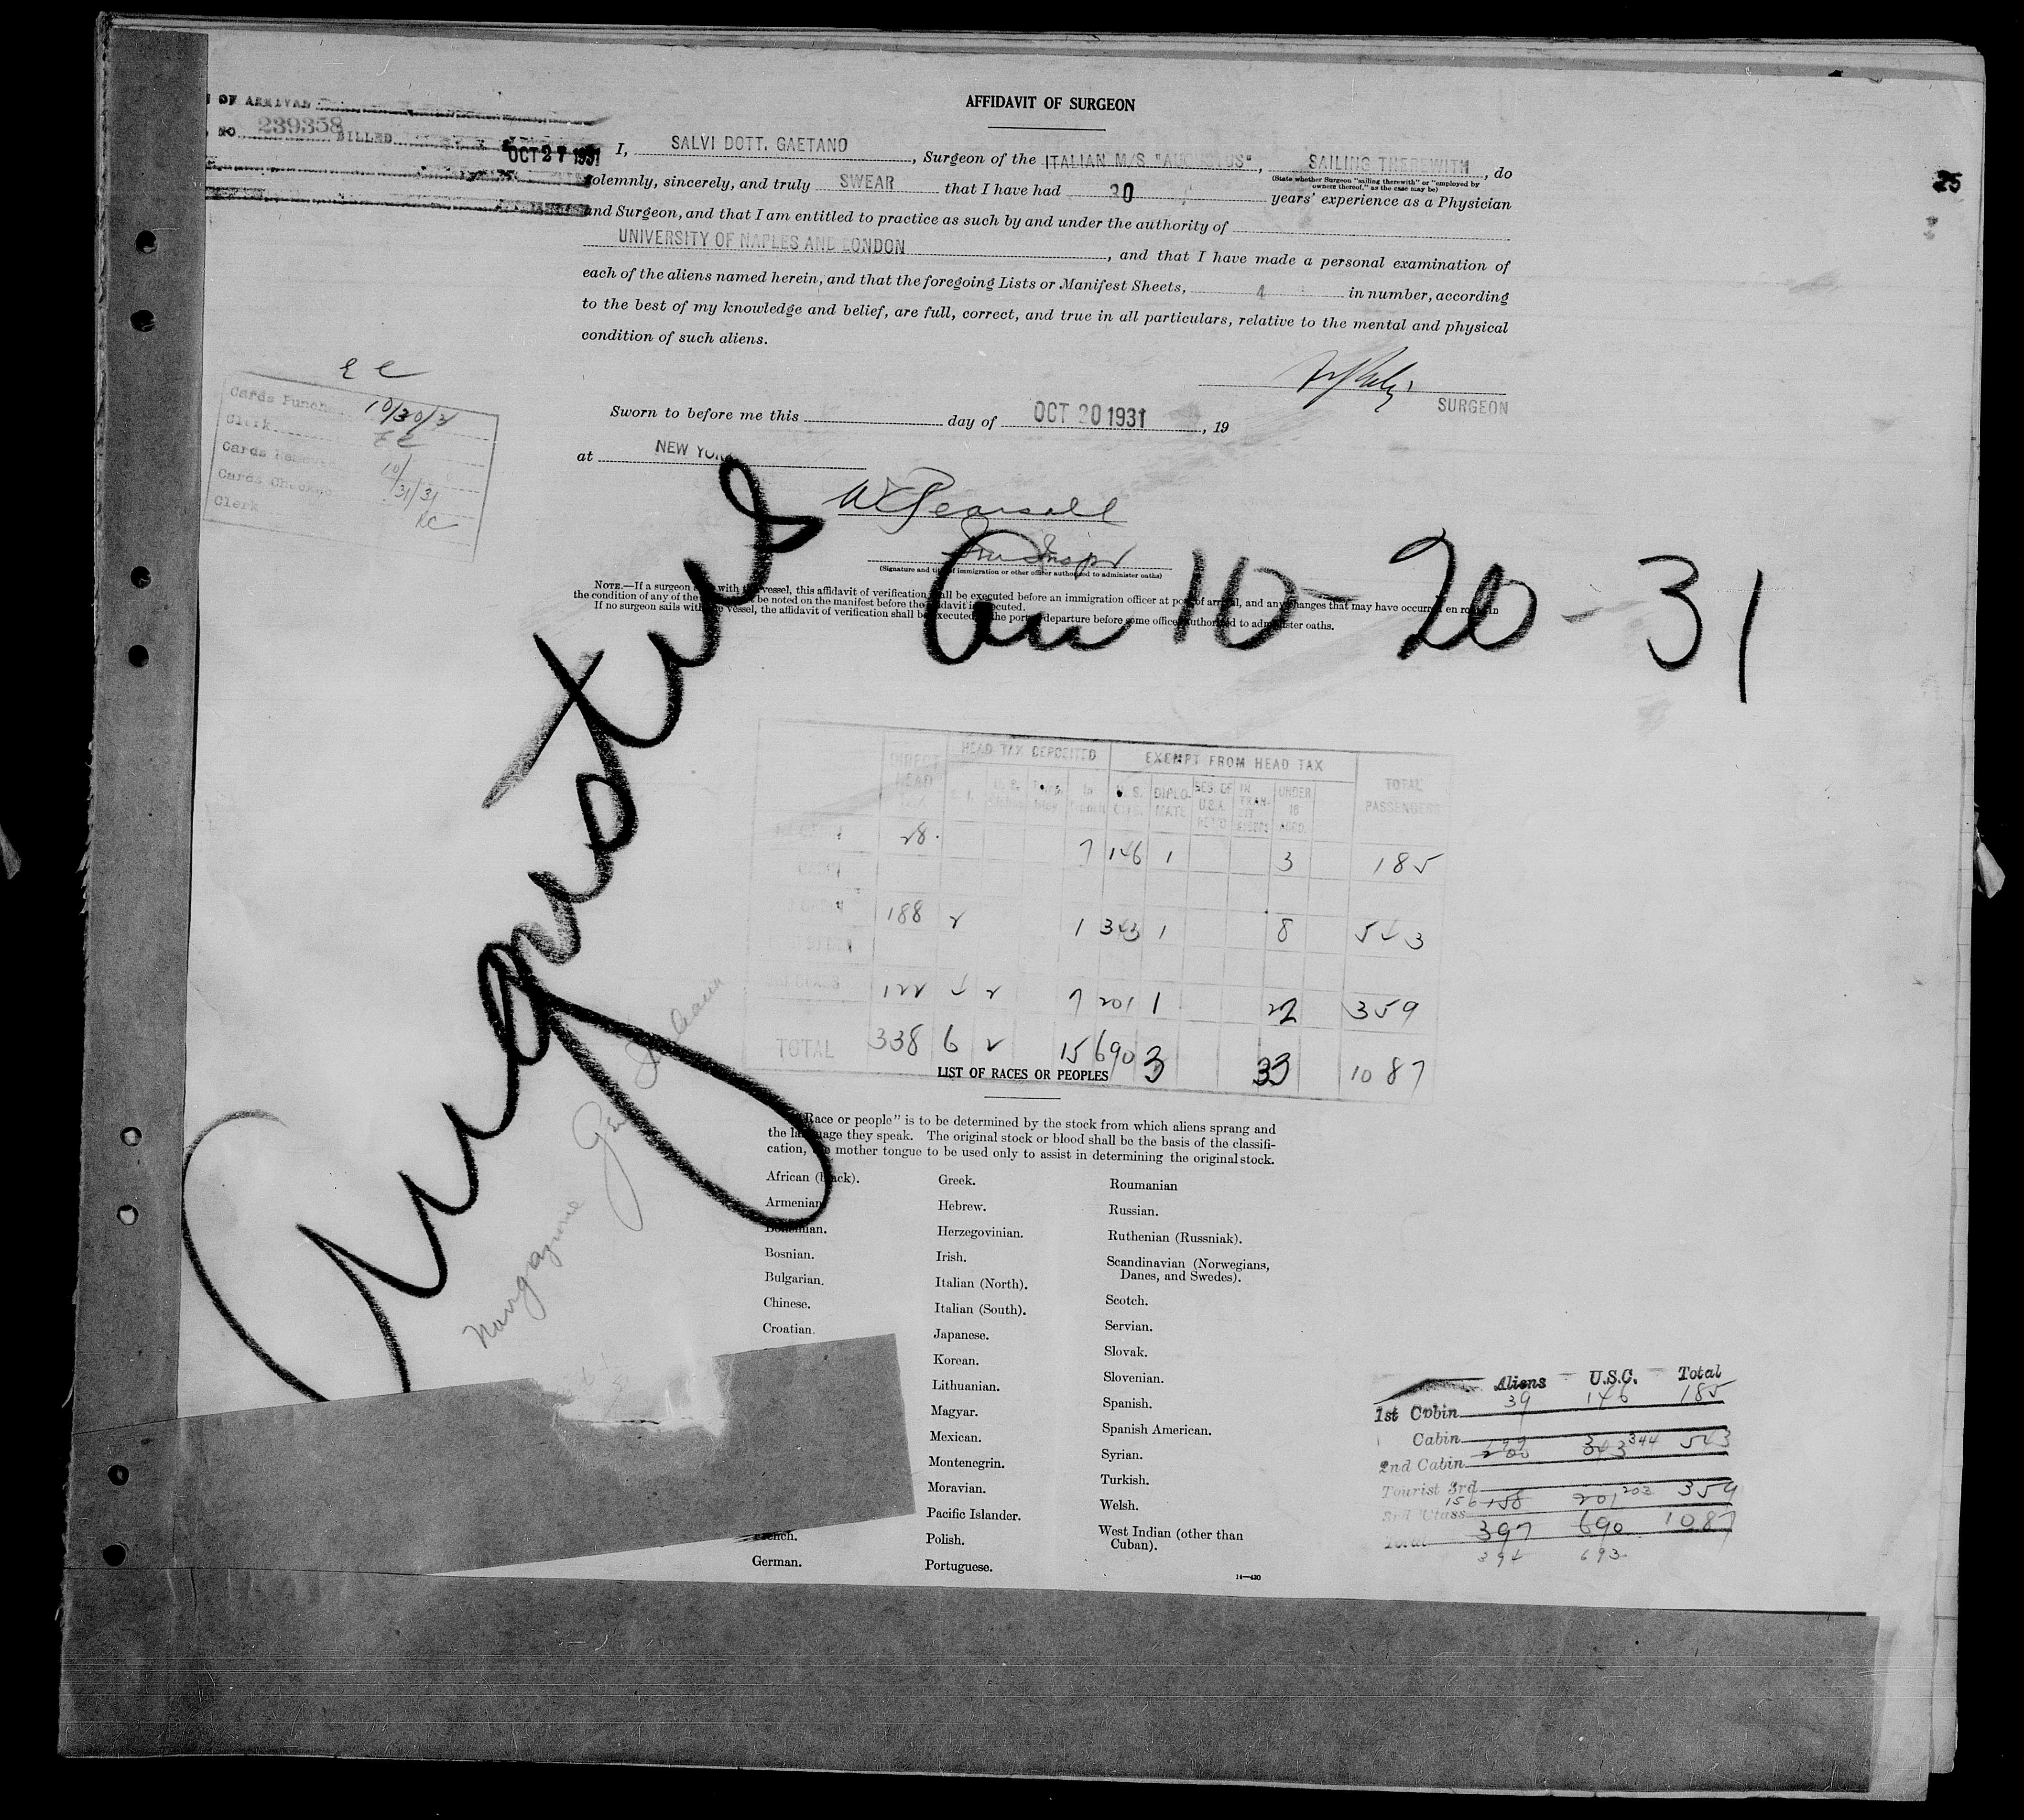 OF ARRIVAL
NO 239358 BILLED
OCT 27 1931
AFFIDAVIT OF SURGEON
I, SALVI DOTT. GAETANO, Surgeon of the ITALIAN M/S "AUGUSTUS", SAILING THEREWITH, do
(State whether Surgeon "sailing therewith" or "employed by
owners thereof," as the case may be)
25
solemnly, sincerely, and truly SWEAR that I have had 30 years' experience as a Physician
and Surgeon, and that I am entitled to practice as such by and under the authority of
UNIVERSITY OF NAPLES AND LONDON, and that I have made a personal examination of
each of the aliens named herein, and that the foregoing Lists or Manifest Sheets, 4 in number, according
to the best of my knowledge and belief, are full, correct, and true in all particulars, relative to the mental and physical
condition of such aliens.
SURGEON
Cards Punch 10/30/31
Clerk
Cards Remov
Cards Checked 10/31/31
Clerk
Sworn to before me this day of OCT 20 1931, 19
at NEW YORK
W Pearsall
Imm Inspr
(Signature and title of immigration or other officer authorized to administer oaths)
NOTE.—If a surgeon sails with the vessel, this affidavit of verification shall be executed before an immigration officer at port of arrival, and any changes that may have occurred en route in
the condition of any of the be noted on the manifest before the affidavit is executed.
If no surgeon sails with the vessel, the affidavit of verification shall be executed the port departure before some officer authorized to administer oaths.
Augustus
Arr 10-20-31
DIRECT HEAD TAX HEAD TAX DEPOSITED EXEMPT FROM HEAD TAX TOTAL PASSENGERS
In Transit U.S. CITS. DIPLO-MATS IN TRAN-SIT UNDER 16 ACCD.
28 7 146 1 3 185
188 2 1 343 1 8 543
3RD CLASS 122 4 2 7 201 1 22 359
TOTAL 338 6 2 15 690 3 33 1087
LIST OF RACES OR PEOPLES
"Race or people" is to be determined by the stock from which aliens sprang and
the language they speak. The original stock or blood shall be the basis of the classifi-
cation, the mother tongue to be used only to assist in determining the original stock.
African (black).
Armenian
Bohemian.
Bosnian.
Bulgarian.
Chinese.
Croatian.
French.
German.
Greek.
Hebrew.
Herzegovinian.
Irish.
Italian (North).
Italian (South).
Japanese.
Korean.
Lithuanian.
Magyar.
Mexican.
Montenegrin.
Moravian.
Pacific Islander.
Polish.
Portuguese.
Roumanian
Russian.
Ruthenian (Russniak).
Scandinavian (Norwegians,
Danes, and Swedes).
Scotch.
Servian.
Slovak.
Slovenian.
Spanish.
Spanish American.
Syrian.
Turkish.
Welsh.
West Indian (other than
Cuban).
14—430
Aliens U.S.C. Total
1st Cabin 39 146 185
Cabin
2nd Cabin 199 200 343 344 543
Tourist 3rd
3rd Class 156 158 201 203 359
Total 397 690 1087
394 693